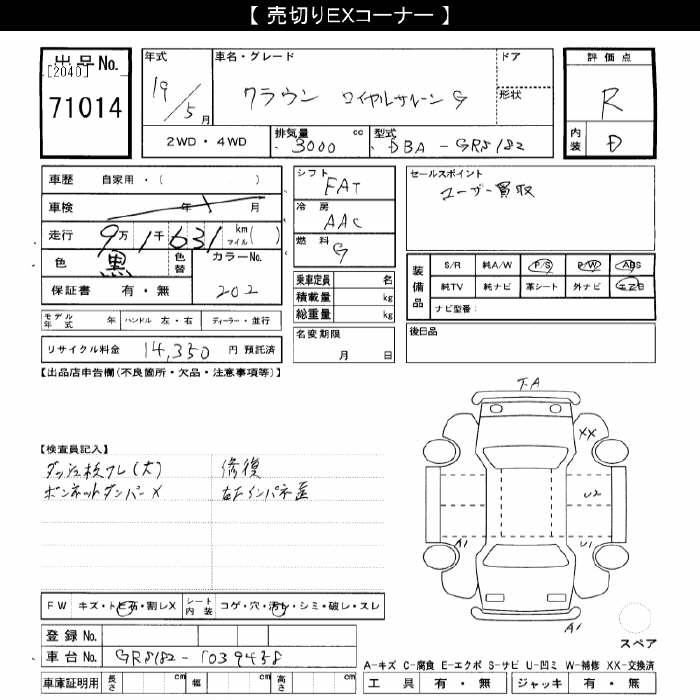 【 売切りEXコーナー 】
出品No.
[2040]
71014
年式
19/5月
車名・グレード
クラウン ロイヤルサルーン G
ドア
形状
評価点
R
内装
D
2WD・4WD
排気量
3000 cc
型式
DBA-GRS182
車歴 自家用・( )
車検 年 月
走行 9万1千631 km マイル( )
色 黒 色替 カラーNo. 202
保証書 有・無
モデル年式 年 ハンドル 左・右 ディーラー・並行
リサイクル料金 14,350 円 預託済
シフト FAT
冷房 AAC
燃料 G
乗車定員 名
積載量 kg
総重量 kg
名変期限
月 日
セールスポイント
ユーザー買取
装備品
S/R 純A/W P/S P/W ABS
純TV 純ナビ 革シート 外ナビ エアB
ナビ型番:
後日品
【出品店申告欄(不良箇所・欠品・注意事項等)】
【検査員記入】
ダッシュ板ワレ(大) 修復
ボンネットダンパー× 右Fインパネ歪
F.A
XX
U2
A1
U1
A1
スペア
FW キズ・トビ石・割レX シート内装 コゲ・穴・汚レ・シミ・破レ・スレ
登録No.
車台No. GRS182-1039438
車庫証明用 長さ cm 幅 cm 高さ cm
A-キズ C-腐食 E-エクボ S-サビ U-凹ミ W-補修 XX-交換済
工具 有・無 ジャッキ 有・無